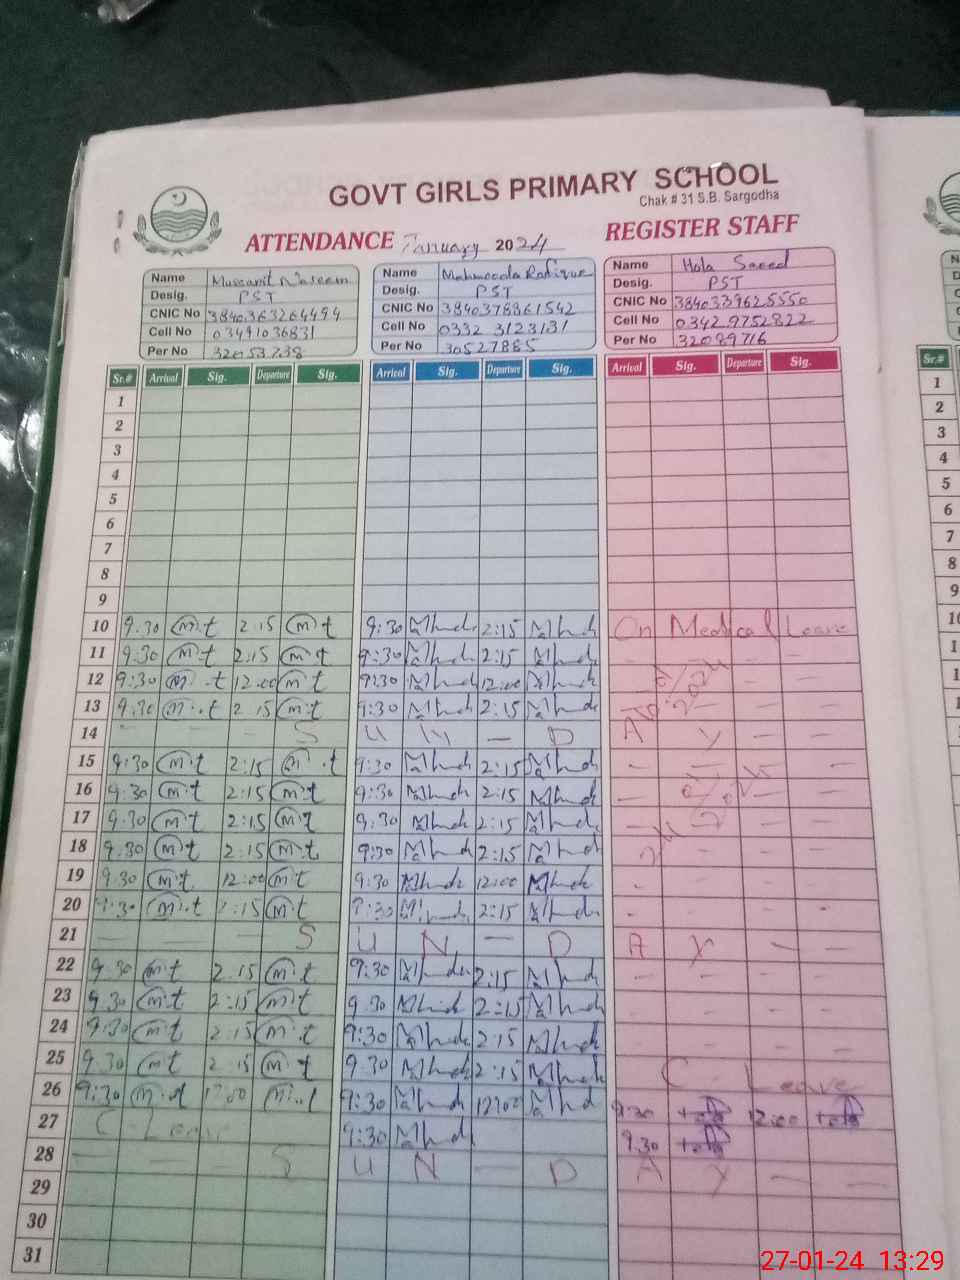 GOVT GIRLS PRIMARY SCHOOL
Chak # 31 S.B. Sargodha
ATTENDANCE January 2024 REGISTER STAFF
Name Musarrit Naseem Name Mahmooda Rafique Name Hala Saeed
Desig. PST Desig. PST Desig. PST
CNIC No 3840363264494 CNIC No 3840378961542 CNIC No 3840339625550
Cell No 03491036831 Cell No 0332 3123131 Cell No 03429752822
Per No 32053738 Per No 30527885 Per No 32089716
Sr.# Arrival Sig. Departure Sig. Arrival Sig. Departure Sig. Arrival Sig. Departure Sig. Sr.#
1 1
2 2
3 3
4 4
5 5
6 6
7 7
8 8
9 9
10 9:30 m.t 2:15 m.t 9:30 Mhd 2:15 Mhd On Medical Leave
11 9:30 m.t 2:15 m.t 9:30 Mhd 2:15 Mhd - - -
12 9:30 m.t 12:00 m.t 9:30 Mhd 12:00 Mhd - - -
13 9:30 m.t 2:15 m.t 9:30 Mhd 2:15 Mhd - - -
14 - - - S U N - D A Y - -
15 9:30 m.t 2:15 m.t 9:30 Mhd 2:15 Mhd - - - -
16 9:30 m.t 2:15 m.t 9:30 Mhd 2:15 Mhd - - -
17 9:30 m.t 2:15 m.t 9:30 Mhd 2:15 Mhd - - - -
18 9:30 m.t 2:15 m.t 9:30 Mhd 2:15 Mhd - - -
19 9:30 m.t 12:00 m.t 9:30 Mhd 12:00 Mhd - - - -
20 9:30 m.t 2:15 m.t 9:30 Mhd 2:15 Mhd - - - -
21 - - - S U N - D A Y - -
22 9:30 m.t 2:15 m.t 9:30 Mhd 2:15 Mhd - - - -
23 9:30 m.t 2:15 m.t 9:30 Mhd 2:15 Mhd - - - -
24 9:30 m.t 2:15 m.t 9:30 Mhd 2:15 Mhd - - - -
25 9:30 m.t 2:15 m.t 9:30 Mhd 2:15 Mhd C Leave
26 9:30 m.t 12:00 m.t 9:30 Mhd 12:00 Mhd 9:30 12:00
27 C - Leave 9:30 Mhd 9:30
28 - - - S U N - D A Y - -
29
30
31
27-01-24 13:29